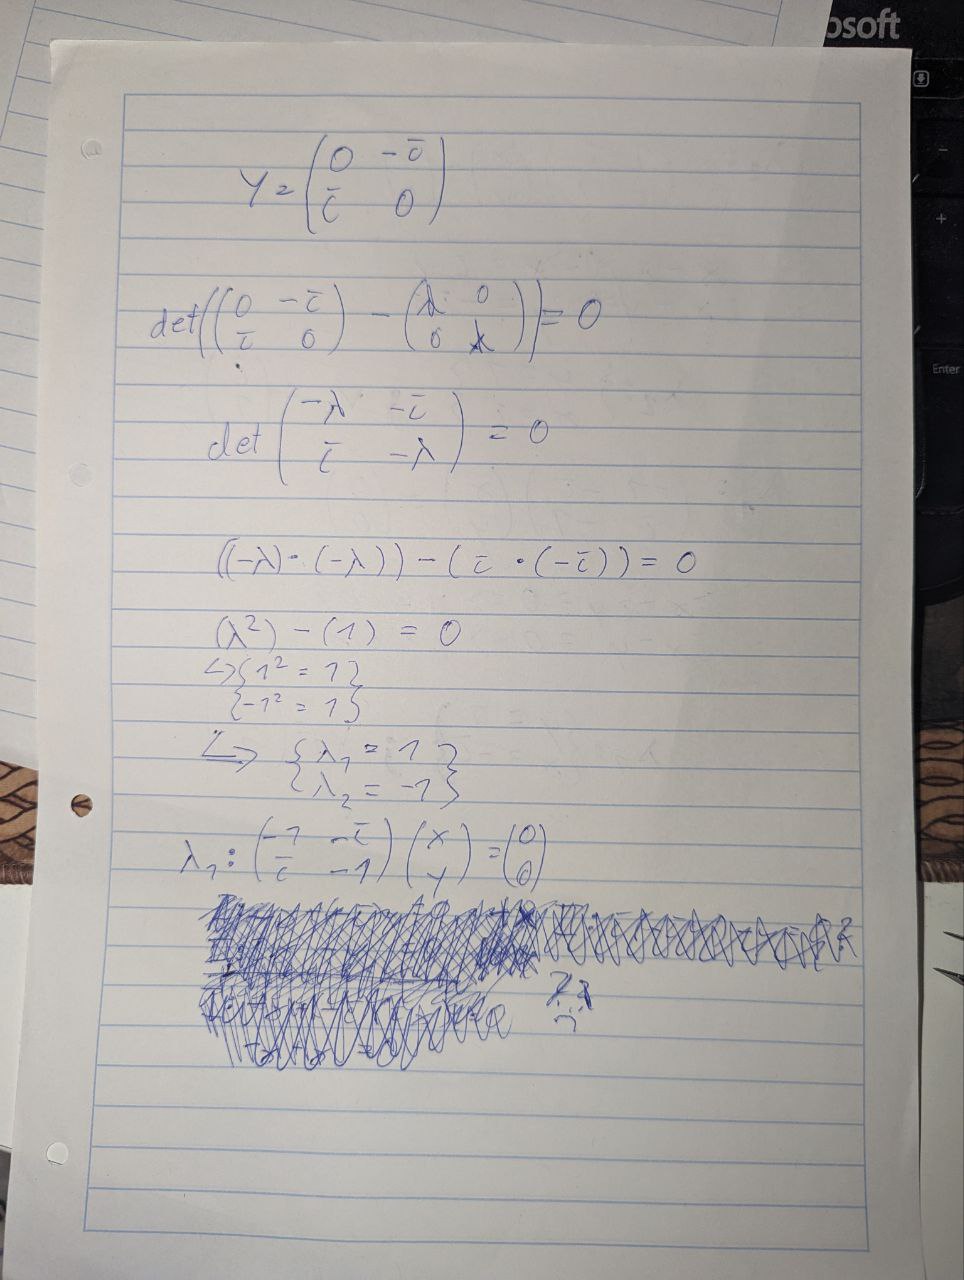 osoft
Enter
Y = (0 -i
i 0)
det((0 -i
i 0) - (λ 0
0 λ)) = 0
det(-λ -i
i -λ) = 0
((-λ)·(-λ)) - (i·(-i)) = 0
(λ²) - (1) = 0
↳{1² = 1}
{-1² = 1}
↳ {λ₁ = 1}
{λ₂ = -1}
λ₁: (-1 -i
i -1)(x
y) = (0
0)
??